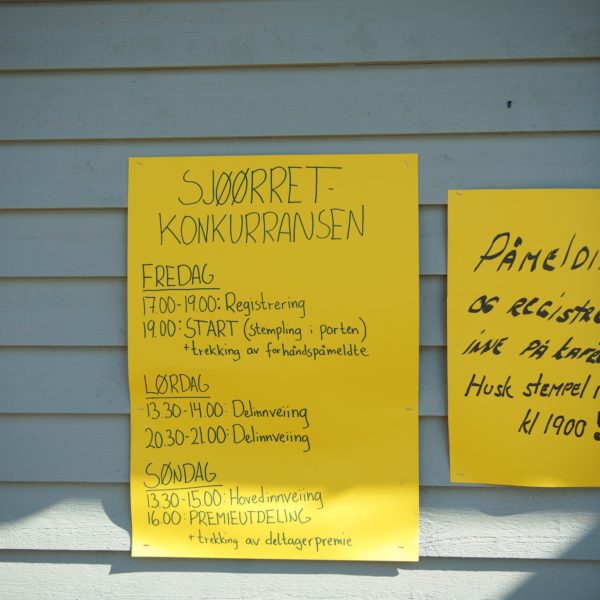 SJØØRRET-
KONKURRANSEN
FREDAG
17.00-19.00: Registrering
19.00: START (stempling i porten)
+ trekking av forhåndspåmeldte
LØRDAG
13.30-14.00: Delinnveiing
20.30-21.00: Delinnveiing
SØNDAG
13.30-15.00: Hovedinnveiing
16.00: PREMIEUTDELING
+ trekking av deltagerpremie
PÅMELDI
OG REGISTRE
INNE PÅ KAFE
HUSK STEMPEL
kl 1900